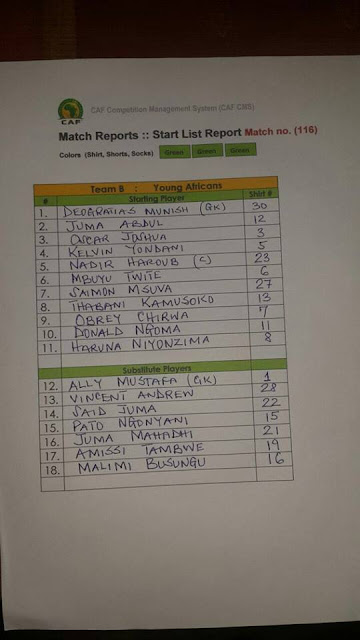 CAF
CAF Competition Management System (CAF CMS)
Match Reports :: Start List Report Match no. (116)
Colors (Shirt, Shorts, Socks) Green Green Green
Team B : Young Africans
# Starting Player Shirt #
1. DEOGRATIAS MUNISH (GK) 30
2. JUMA ABDUL 12
3. OSCAR JOSHUA 3
4. KELVIN YONDANI 5
5. NADIR HAROUB (C) 23
6. MBUYU TWITE 6
7. SAIMON MSUVA 27
8. THABANI KAMUSOKO 13
9. OBREY CHIRWA 7
10. DONALD NGOMA 11
11. HARUNA NIYONZIMA 8
Substitute Players
12. ALLY MUSTAFA (GK) 1
13. VINCENT ANDREW 28
14. SAID JUMA 22
15. PATO NGONYANI 15
16. JUMA MAHADHI 21
17. AMISSI TAMBWE 19
18. MALIMI BUSUNGU 16